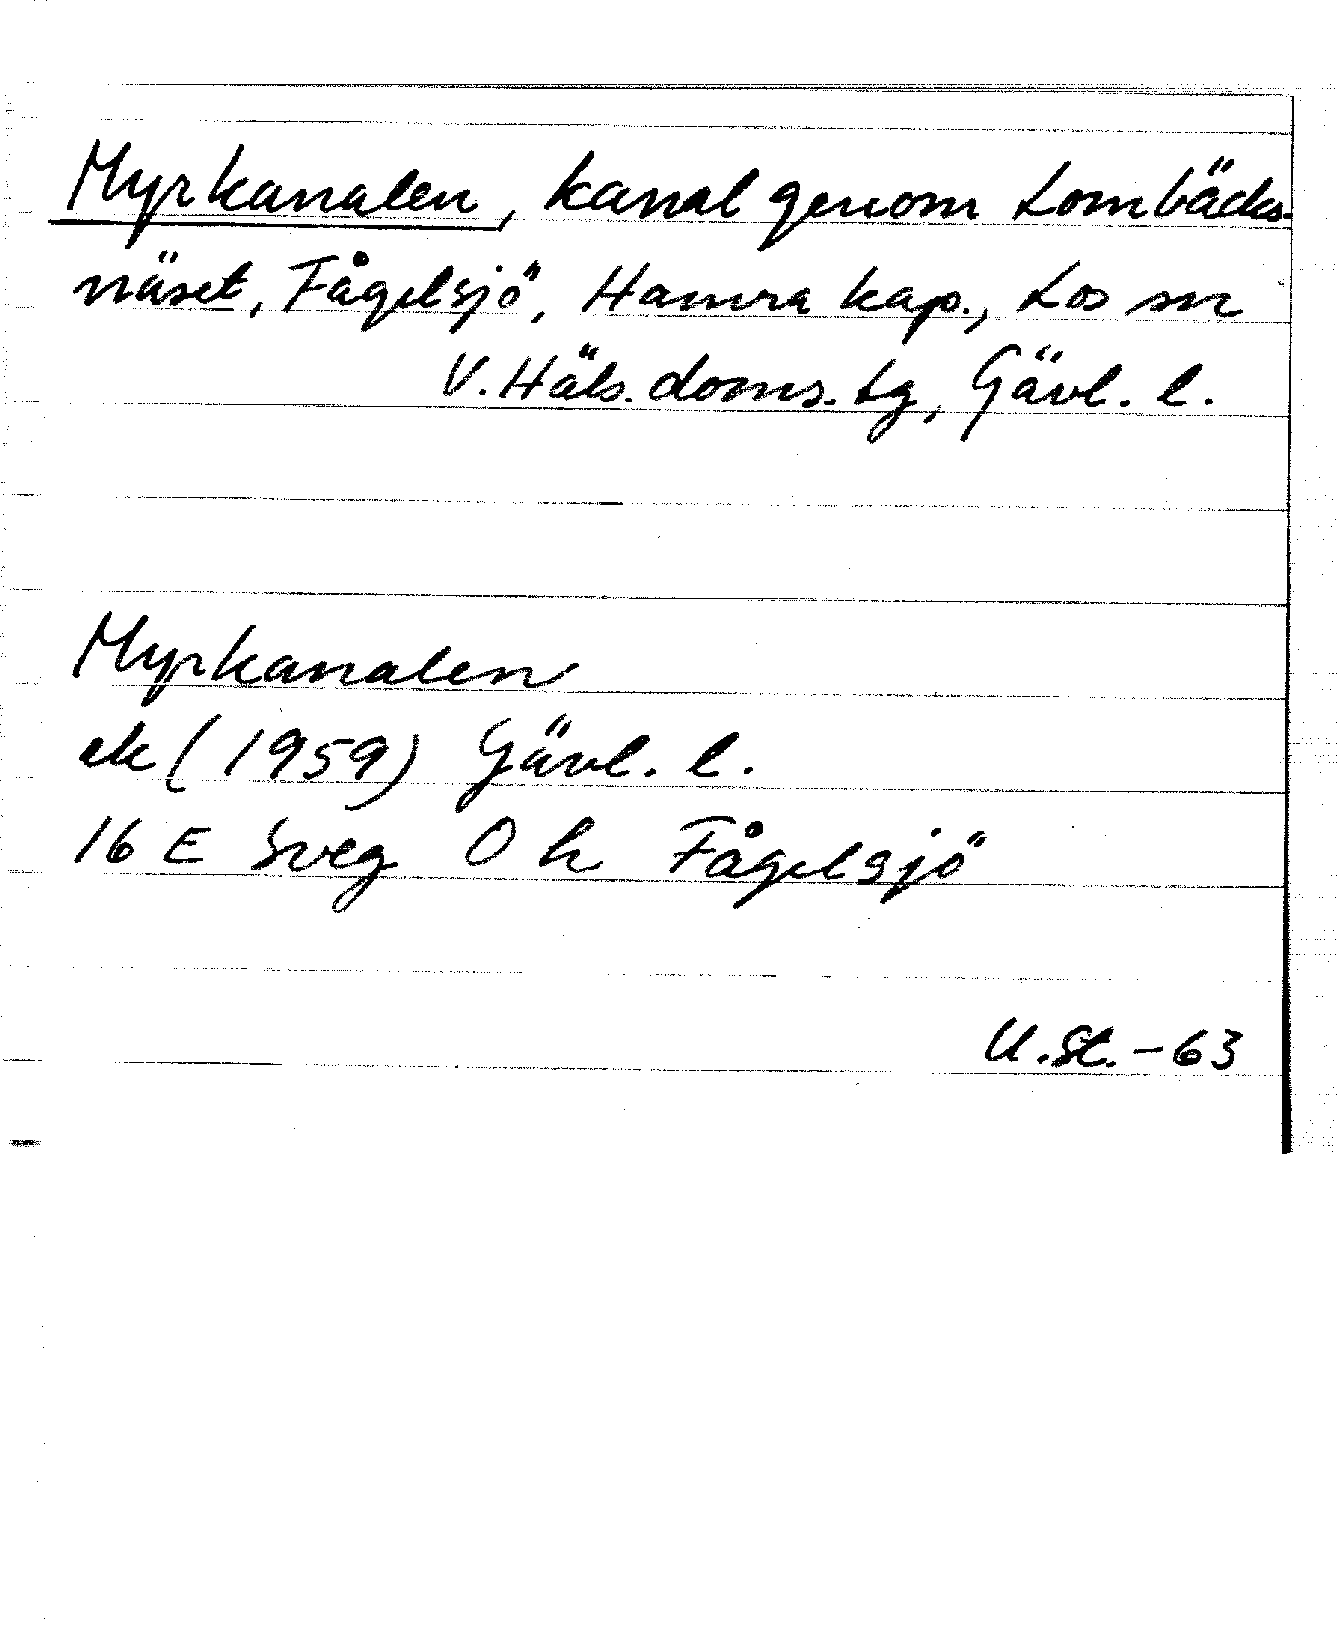 Myrkanalen, kanal genom Lombäcks-
näset, Fågelsjö, Hamra kap., Los sn
V. Häls. doms. tg, Gävl. l.
Myrkanalen
ek (1959) Gävl. l.
16 E Sveg 0 h Fågelsjö
U.St. -63